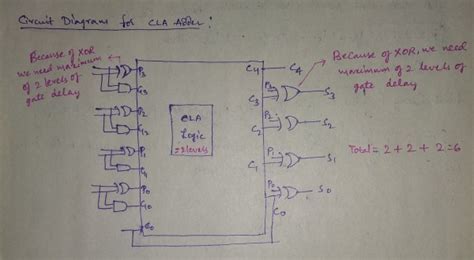 Circuit Diagram for CLA Adder:
Because of XOR
we need maximum
of 2 levels of
gate delay
P3
G3
P2
G2
P1
G1
P0
G0
C0
CLA
Logic
=2 levels
C4
C4
P3
C3
S3
P2
C2
S2
P1
C1
S1
P0
C0
S0
Because of XOR, we need
maximum of 2 levels of
gate delay
Total = 2 + 2 + 2 = 6